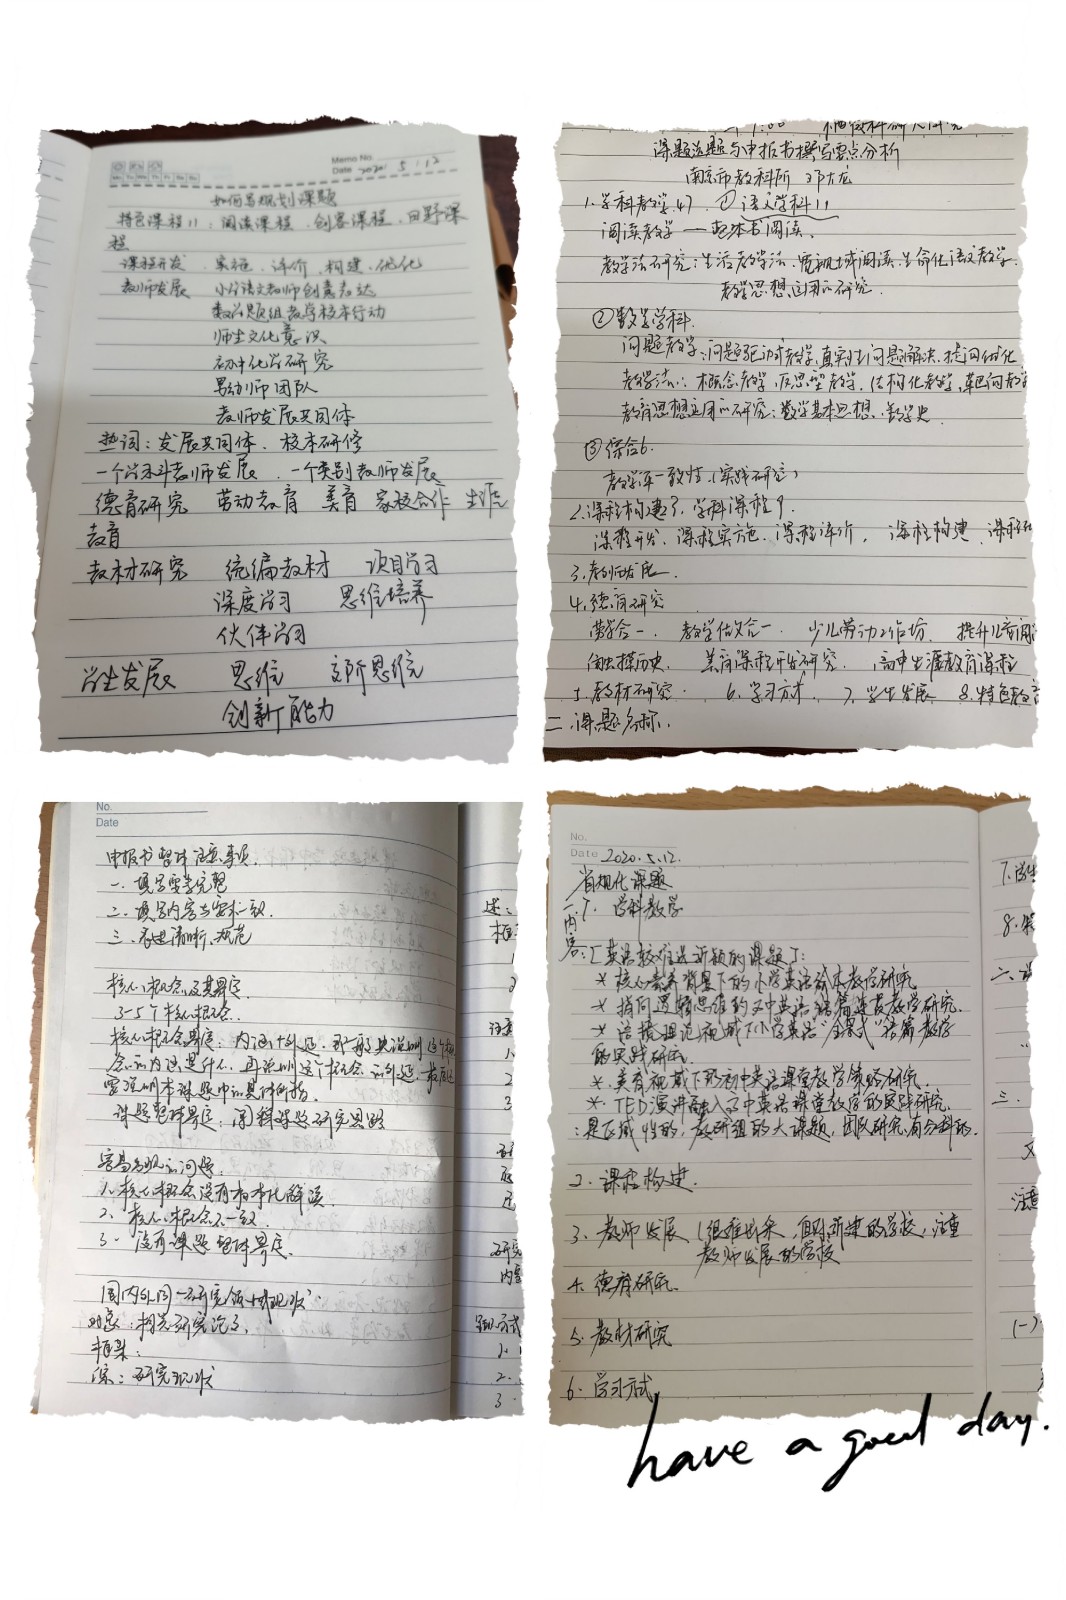 Memo No.
Date 2020. 5. 12
如何写规划课题
特色课程11：阅读课程、创客课程、田野课
程
课程开发、实施、评价、构建、优化
教师发展 小学语文教师创意表达
数学题组教学校本行动
师生文化意识
初中化学研究
男幼师团队
教师发展共同体
热词：发展共同体、校本研修
一个学科教师发展、一个类别教师发展
德育研究 劳动教育 美育 家校合作 生活
教育
教材研究 统编教材 项目学习
深度学习 思维培养
伙伴学习
学生发展 思维 高阶思维
创新能力
课题选题与申报书撰写要点分析
南京市教科所 邓大龙
1.学科教学47 ①语文学科11
阅读教学 — 整本书阅读、
教学法研究：生活教学法、阅读、生命化语文教学、
教学思想运用的研究
②数学学科
问题教学：问题驱动式教学、真实性问题解决、提问优化
教学法：概念教学、反思型教学、结构化教学、
教育思想运用的研究：数学基本思想、数学史
③综合6.
教学评一致性（实践研究）
2.课程构建了，学科课程9.
课程开发、课程实施、课程评价，课程构建、
3.教师发展.
4.德育研究
教学做合一、少儿劳动工作坊、提升儿童
触摸历史、美育课程开发研究、高中生涯教育课程
5.教材研究. 6.学习方式. 7.学生发展 8.特色教育
二.课题名称.
No.
Date
申报书整体注意事项.
一.填写要素完整
二.填写内容与要求一致.
三.表述清晰、规范
核心概念及其界定
3-5个核心概念.
核心概念界定：内涵+外延，
念的内涵是什么，再说明这个概念的外延，最后还
要说明本课题中的具体所指.
课题整体界定：阐释课题研究思路
容易出现的问题.
1.核心概念没有校本化解读.
2.核心概念不一致.
3.没有课题整体界定.
国内外同一研究领域现状
对象：相关研究论文.
框架：
综：研究现状
No.
Date 2020.5.12.
省规化课题
一.1. 学科教学
内
容：[英语较难选新颖的课题]：
* 核心素养背景下的小学英语绘本教学研究
* 指向逻辑思维的英语语篇教学研究.
* 语境理论视域下小学英语“ 式”语篇教学
的实践研究.
* 美育视域下的初中英语课堂教学策略研究.
* TED演讲融入高中英语课堂教学的实践研究.
：是区域性的，教研组的大课题，团队研究，有分科的.
2. 课程构建.
3. 教师发展（很难出来，但对新建的学校，注重
教师发展的学校
4. 德育研究.
5. 教材研究
6. 学习方式
have a good day.